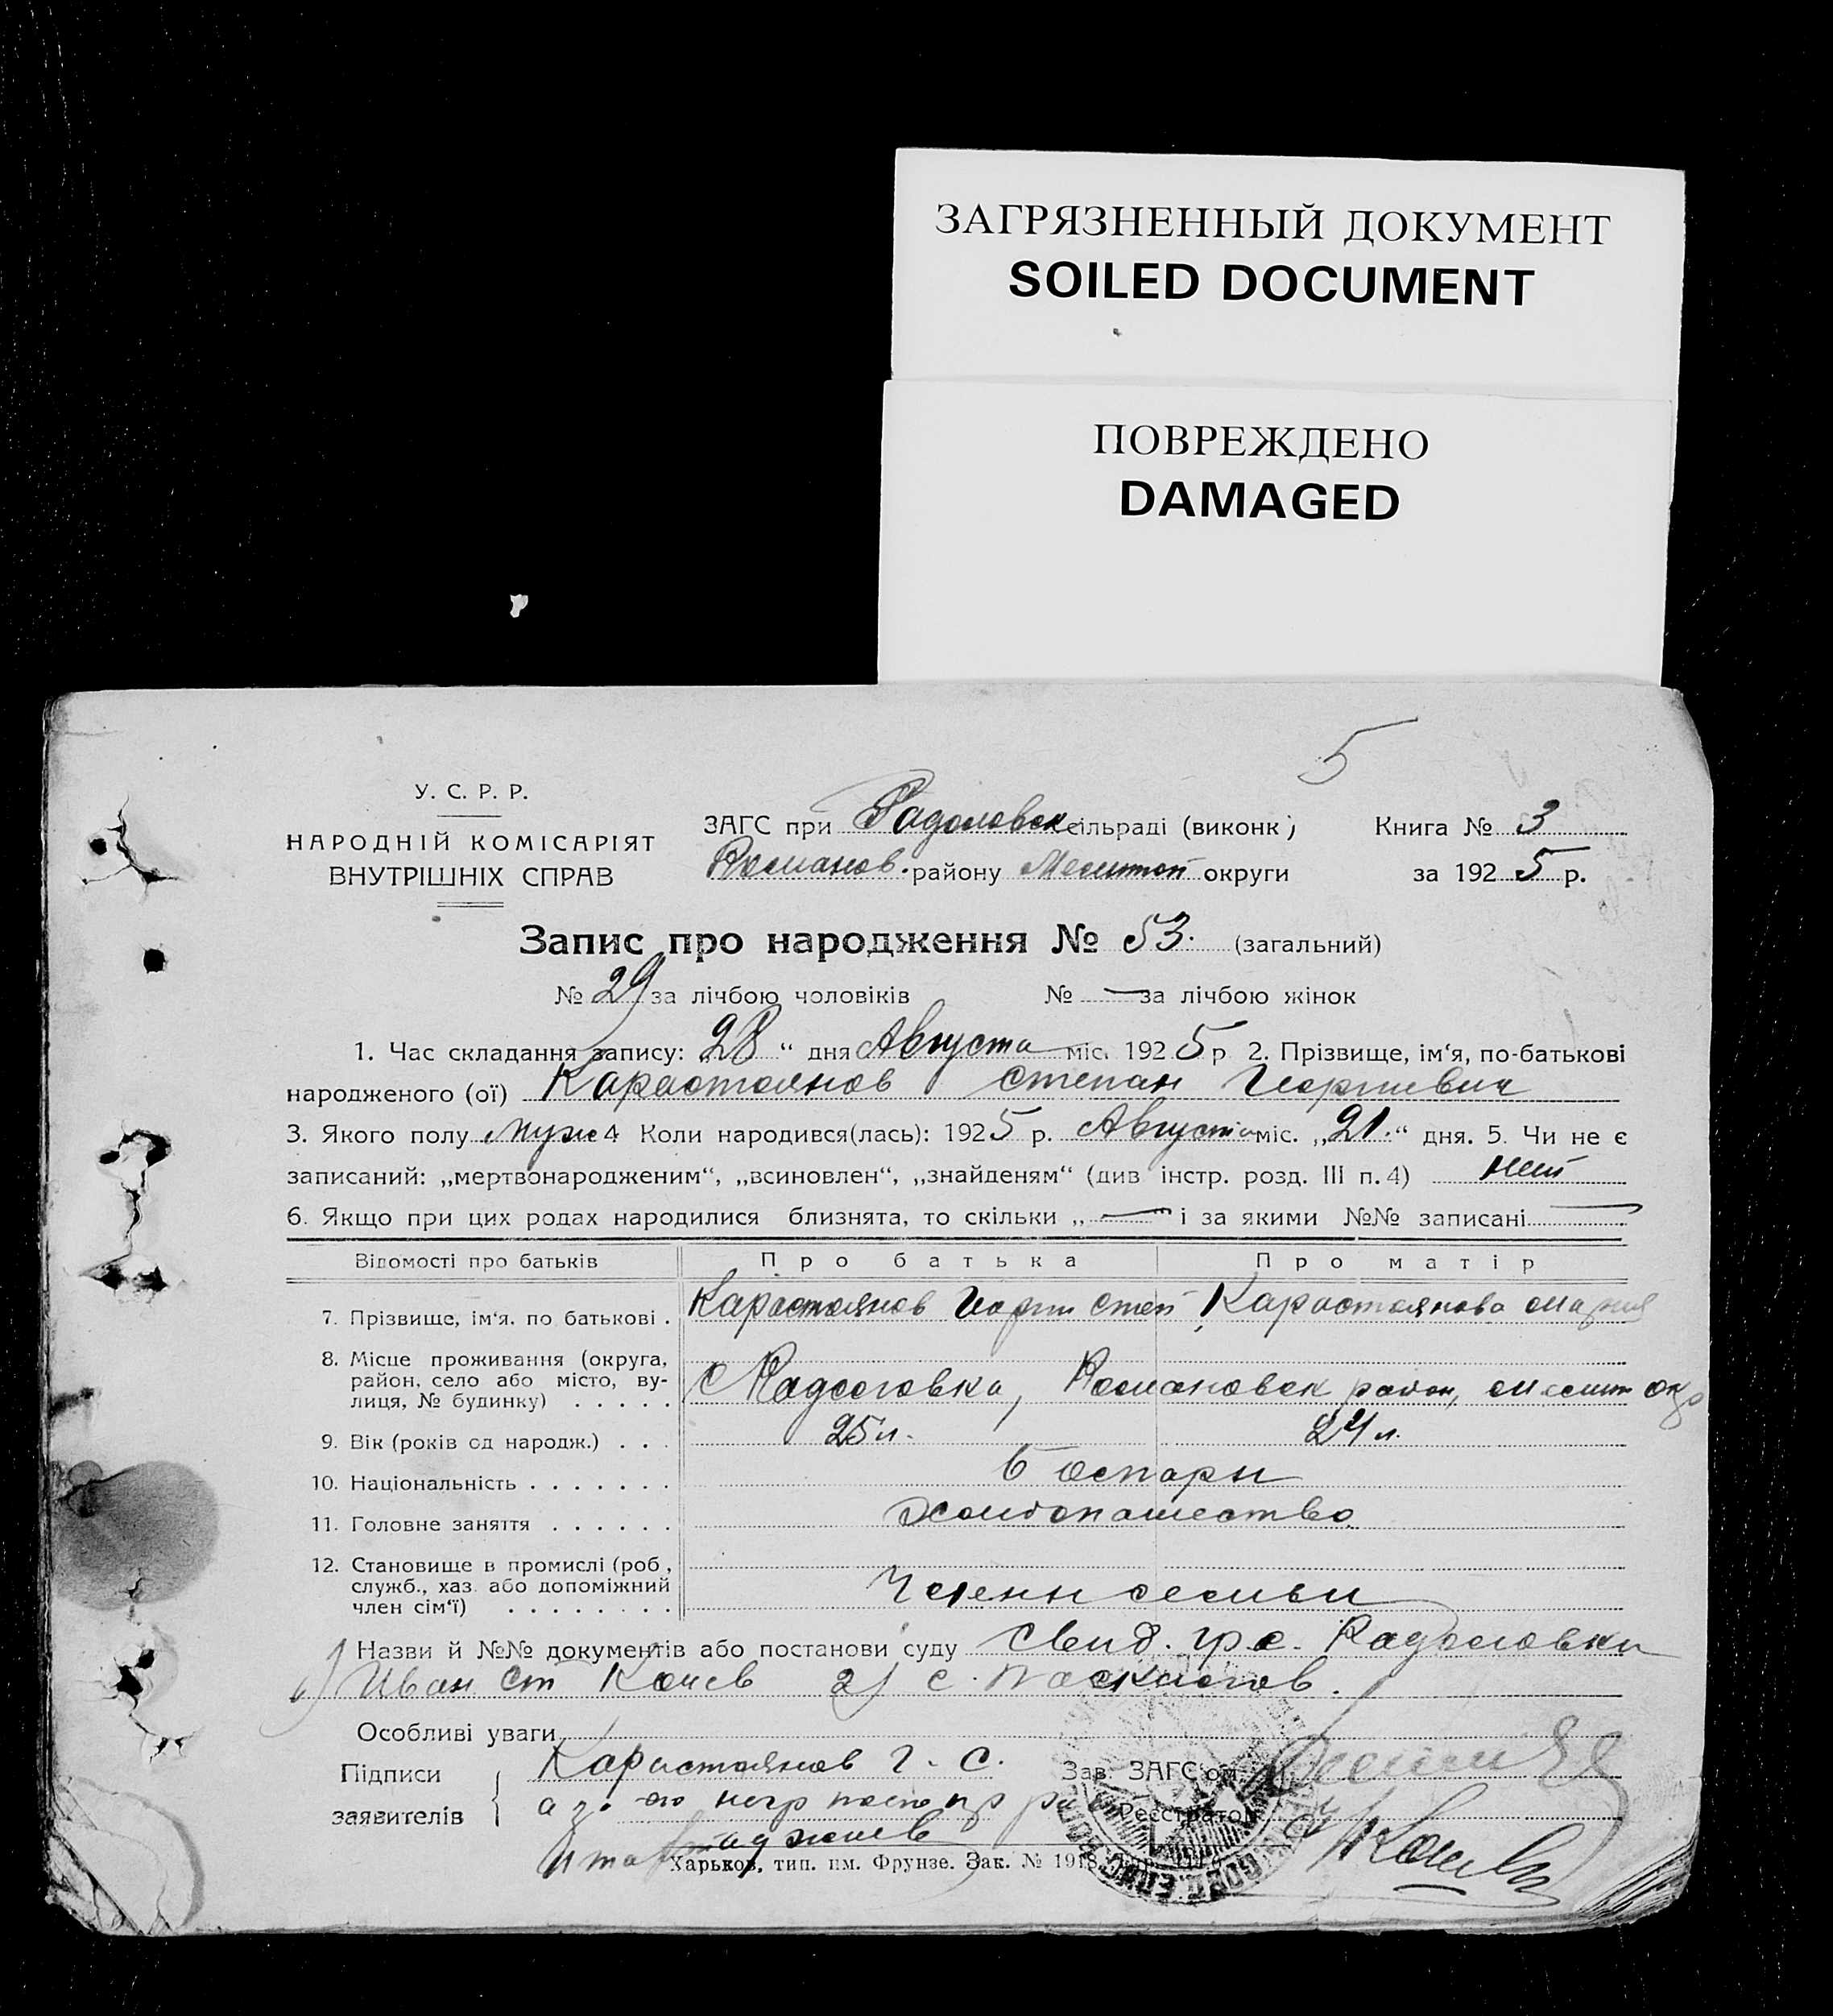 ЗАГРЯЗНЕННЫЙ ДОКУМЕНТ
SOILED DOCUMENT
ПОВРЕЖДЕНО
DAMAGED
5
У. С. Р. Р.
НАРОДНІЙ КОМІСАРІЯТ
ВНУТРІШНІХ СПРАВ
ЗАГС при Радоловск сільраді (виконк)
Романов. району Мелитоп округи
Книга № 3
за 1925 р.
Запис про народження № 53. (загальний)
№ 29 за лічбою чоловіків № — за лічбою жінок
1. Час складання запису: 28 “ дня Августа міс. 1925 р 2. Прізвище, ім‘я, по-батькові
народженого (ої) Карастоянов Степан Георгиевич
3. Якого полу муж 4 Коли народився(лась): 1925 р. Августа міс. „21.“ дня. 5. Чи не є
записаний: „мертвонародженим“, „всиновлен“, „знайденям“ (див інстр. розд. III п. 4) нет
6. Якщо при цих родах народилися близнята, то скільки „ — “ і за якими №№ записані —
Відомості про батьків Про батька Про матір
7. Прізвище, ім‘я. по батькові . Карастоянов Георги Степ Карастоянова Мария
8. Місце проживання (округа,
район, село або місто, ву-
лиця, № будинку) . . . . . с Радоловка, Романовск район, Мелит окр
9. Вік (років од народж.) . . . 25 л. 24 л.
10. Національність . . . . . . .
11. Головне заняття . . . . . . хлебопашество
12. Становище в промислі (роб.,
служб., хаз. або допоміжний
член сім‘ї) . . . . . . . . Члены семьи
Назви й №№ документів або постанови суду Свид. гр. с. Радоловки
1) Иван Ст Колев 2) с.
Особливі уваги
Підписи
заявителів
Карастоянов Г. С.
а за его негр
Зав. ЗАГС‘ом
Реєстратор
Харьков, тип. им. Фрунзе. Зак. № 1918